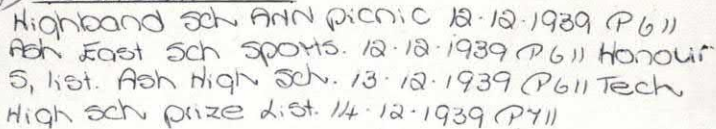 Highband Sch ANN picnic 12.12.1939 (P6))
Ash East Sch sports. 12.12.1939 (P6)) Honour
S, list. Ash High Sch. 13.12.1939 (P6)) Tech
High sch prize list. 14.12.1939 (P7))